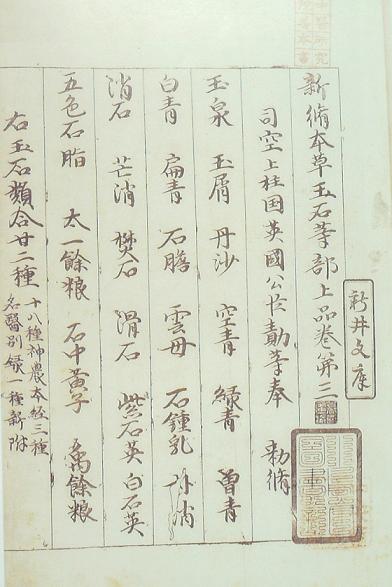 新井文庫
新脩本草玉石等部上品卷第三
司空上柱国英國公臣勣等奉 勅脩
玉泉 玉屑 丹沙 空青 緑青 曾青
白青 扁青 石膽 雲母 石鍾乳 朴消
消石 芒消 礬石 滑石 紫石英 白石英
五色石脂 太一餘粮 石中黃子 禹餘粮
右玉石類合廿二種
十八種神農本経三種
名醫別録一種新附